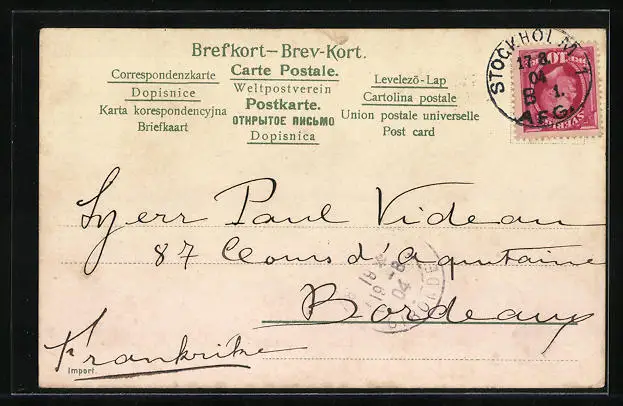 Brefkort—Brev-Kort.
Correspondenzkarte
Carte Postale.
Levelező-Lap
Dopisnice
Weltpostverein
Cartolina postale
Karta korespondencyjna
Postkarte.
Union postale universelle
Briefkaart
ОТКРЫТОЕ ПИСЬМО
Post card
Dopisnica
STOCKHOLM 1
17.8.
04
B 1.
AFG.
10
Herr Paul Videau
87 Cours d'Aquitaine
Bordeaux
Frankrike
Import.
04